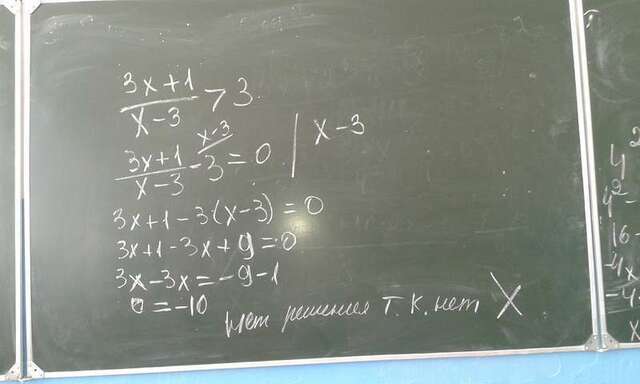 3x+1/x-3 > 3
3x+1/x-3 - 3 = 0 | x-3
x-3
3x+1-3(x-3)=0
3x+1-3x+9=0
3x-3x=-9-1
0=-10
нет решения т.к. нет x
4²
4²-
16-
-4x
-4
x